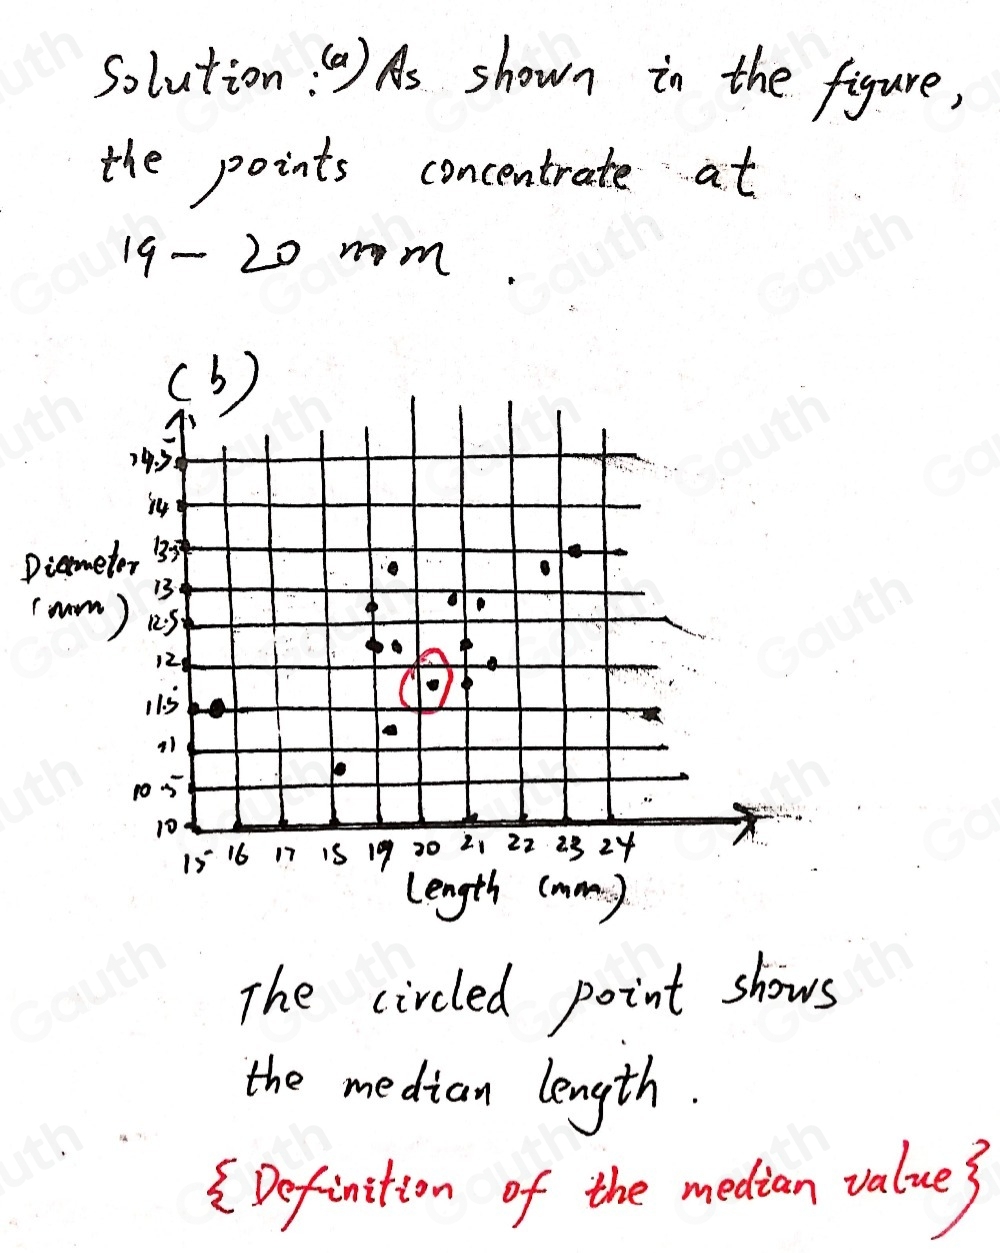 Solution: (a) As shown in the figure,
the points concentrate at
19 - 20 mm .
(b)
14.5
14
13.5
Diameter
(mm)
13
12.5
12
11.5
11
10.5
10
15 16 17 18 19 20 21 22 23 24
Length (mm)
The circled point shows
the median length .
{ Definition of the median value }
Gauth